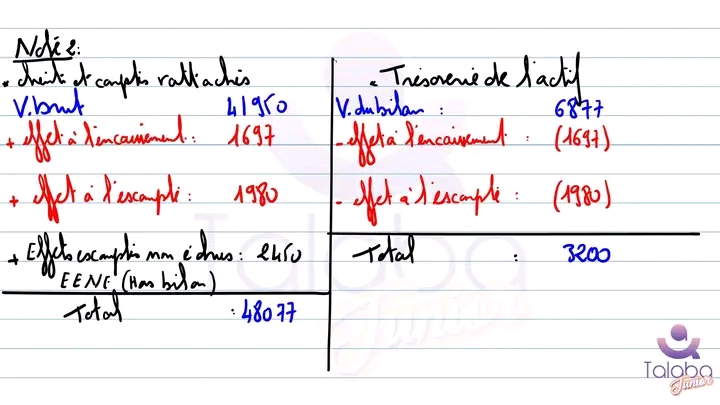 Note 2:
. clients et comptes rattachés
V. brut 41950
+ effet à l'encaissement : 1697
+ effet à l'escompte : 1980
+ Effets escomptés non échus : 2450
EENE (Hors bilan)
Total : 48077
. Trésorerie de l'actif
V. du bilan : 6877
- effet à l'encaissement : (1697)
- effet à l'escompte : (1980)
Total : 3200
Talaba
Junior
Talaba
Junior